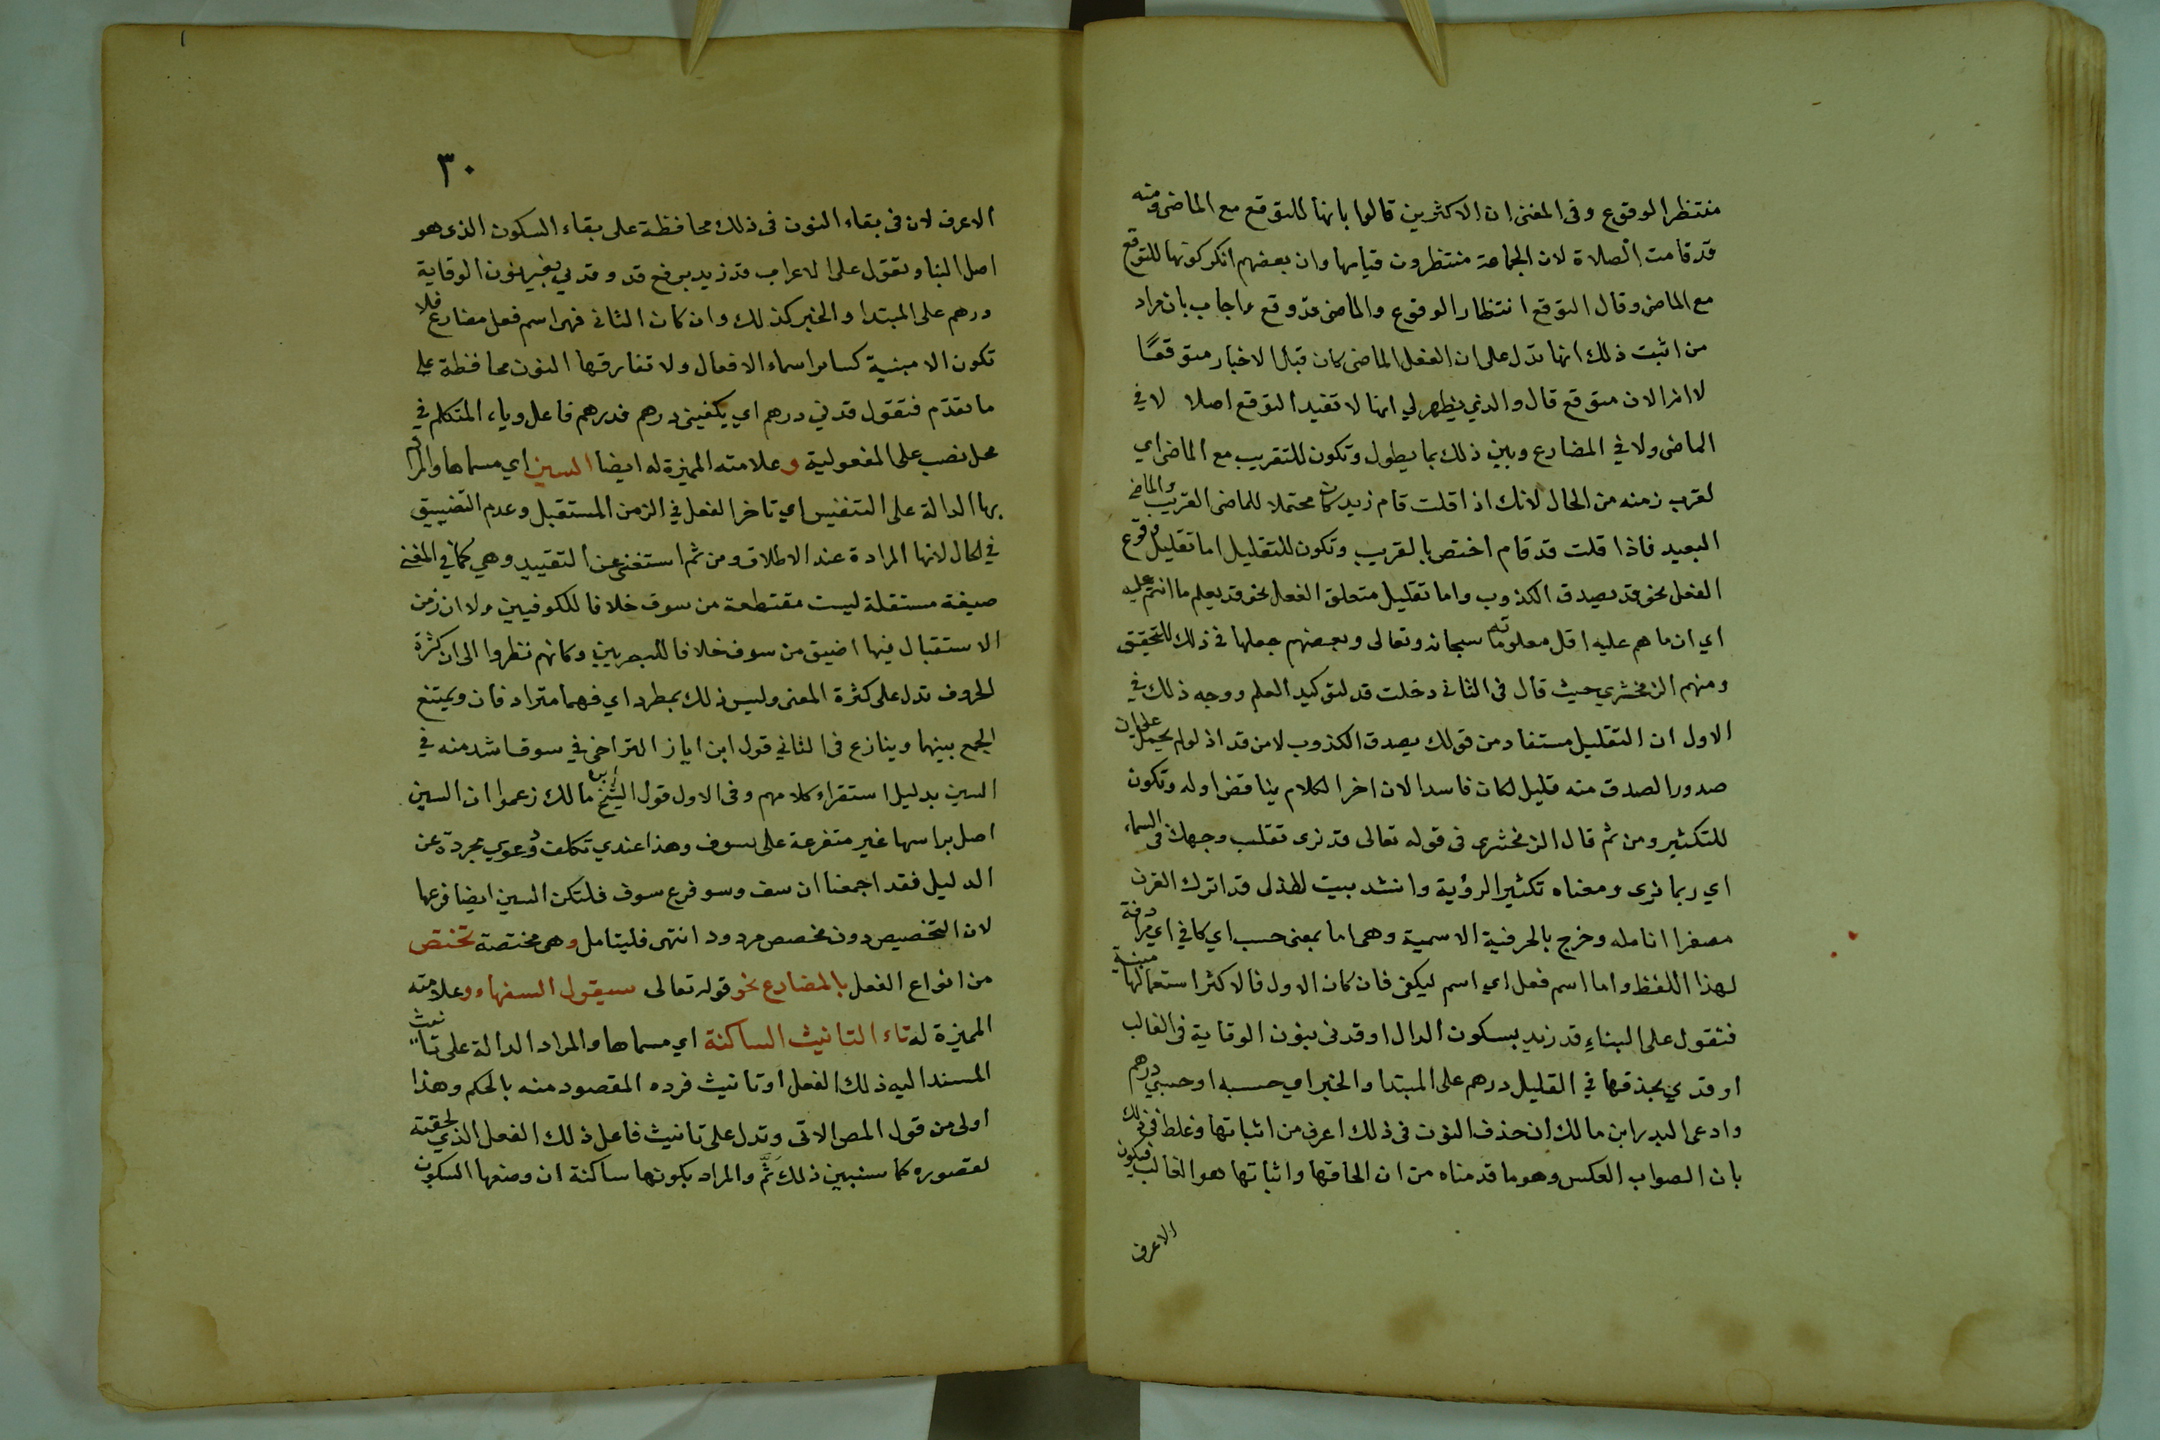 منتظرا لوقوع وفى المغنى ان الاكثرين قالوا بانها للتوقع مع الماضى ومنه
قد قامت الصلاة لان الجماعة منتظرون قيامها وان بعضهم انكر كونها للتوقع
مع الماضى وقال التوقع انتظار الوقوع والماضى قد وقع واجاب بان مراد
من اثبت ذلك انها تدل على ان الفعل الماضى كان قبل الاخبار متوقعًا
لا انه الان متوقع قال والذي يظهر لي انها لا تفيد التوقع اصلا لا في
الماضى ولا في المضارع وبين ذلك بما يطول وتكون للتقريب مع الماضى اي
لقرب زمنه من الحال لانك اذا قلت قام زيد كان محتملا للماضى القريب والماضى
البعيد فاذا قلت قد قام اختص بالقريب وتكون للتقليل اما تقليل وقوع
الفعل نحو قد يصدق الكذوب واما تقليل متعلق الفعل نحو قد يعلم ما انتم عليه
اي ان ما هم عليه اقل معلوماته سبحانه وتعالى وبعضهم جعلها في ذلك للتحقيق
ومنهم الزمخشري حيث قال في الثانى دخلت قد لتوكيد العلم ووجه ذلك في
الاول ان التقليل مستفاد من قولك يصدق الكذوب لا من قد اذ لو لم يحمل على ان
صدور الصدق منه قليل لكان فاسدا لان اخر الكلام يناقض اوله وتكون
للتكثير ومن ثم قال الزمخشرى فى قوله تعالى قد نرى تقلب وجهك فى السماء
اي ربما نرى ومعناه تكثير الرؤية وانشد بيت لهذلى قد اترك القرن
مصفرا انامله وخرج بالحرفية الاسمية وهى اما بمعنى حسب اي كافى اي مرادفة
لهذا اللفظ واما اسم فعل اي اسم ليكفى فان كان الاول فالاكثر استعمالها مبنية
فتقول على البناء قد زيد بسكون الدال او قدنى بنون الوقاية فى الغالب
او قدي بحذفها في القليل درهم على المبتدا والخبر اي حسبه او حسبي درهم
وادعى البدر ابن مالك ان حذف النون فى ذلك اعرف من اثباتها وغلط فى ذلك
بان الصواب العكس وهو ما قدمناه من ان الحاقها واثباتها هو الغالب فيكون
الاعرف
٣٠
الاعرف لان فى بقاء النون فى ذلك محافظة على بقاء السكون الذى هو
اصل البنا وتقول على الاعراب قد زيد برفع قد وقدي بغير نون الوقاية
درهم على المبتدا والخبر كذلك وان كان الثانى فهى اسم فعل مضارع فلا
تكون الا مبنية كسائر اسماء الافعال ولا تفارقها النون محافظة على
ما تقدم فتقول قدني درهم اي يكفينى درهم فدرهم فاعل وياء المتكلم في
محل نصب على المفعولية وعلامته المميزة له ايضا السين اي مسماها والمراد
بها الدالة على التنفيس اي تاخر الفعل في الزمن المستقبل وعدم التضييق
في الحال لانها المرادة عند الاطلاق ومن ثم استغنى عن التقييد وهي كما في المغنى
صيغة مستقلة ليست مقتطعة من سوف خلافا للكوفيين ولا ان زمن
الاستقبال فيها اضيق من سوف خلافا للبصريين وكانهم نظروا الى ان كثرة
الحروف تدل على كثرة المعنى وليس ذلك بمطرد اي فهما مترادفان ويمتنع
الجمع بينهما وينازع فى الثاني قول ابن اياز التراخى في سوف اشد منه في
السين بدليل استقراء كلامهم وفى الاول قول الشيخ ابن مالك زعموا ان السين
اصل براسها غير متفرعة على سوف وهذا عندي تكلف ودعوي مجردة عن
الدليل فقد اجمعنا ان سف وسو فرع سوف فلتكن السين ايضا فرعها
لان التخصيص دون مخصص مردود انتهى فليتامل وهى مختصة تختص
من انواع الفعل بالمضارع نحو قوله تعالى سيقول السفهاء وعلامته
المميزة له تاء التانيث الساكنة اي مسماها والمراد الدالة على تانيث
المسند اليه ذلك الفعل او تانيث فرده المقصود منه بالحكم وهذا
اولى من قول المص الاتى وتدل على تانيث فاعل ذلك الفعل الذي لحقته
لقصوره كما سنبين ذلك ثَمَّ والمراد بكونها ساكنة ان وضعها السكون